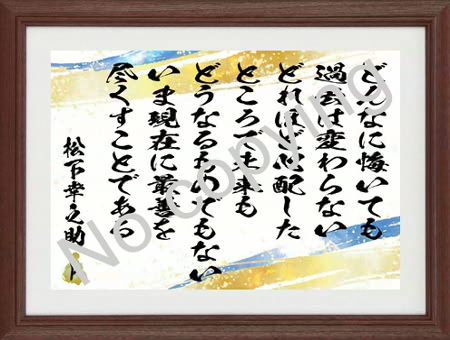 どんなに悔いても
過去は変わらない
どれほど心配した
ところで未来も
どうなるものでもない
いま現在に最善を
尽くすことである
松下幸之助
No Copying